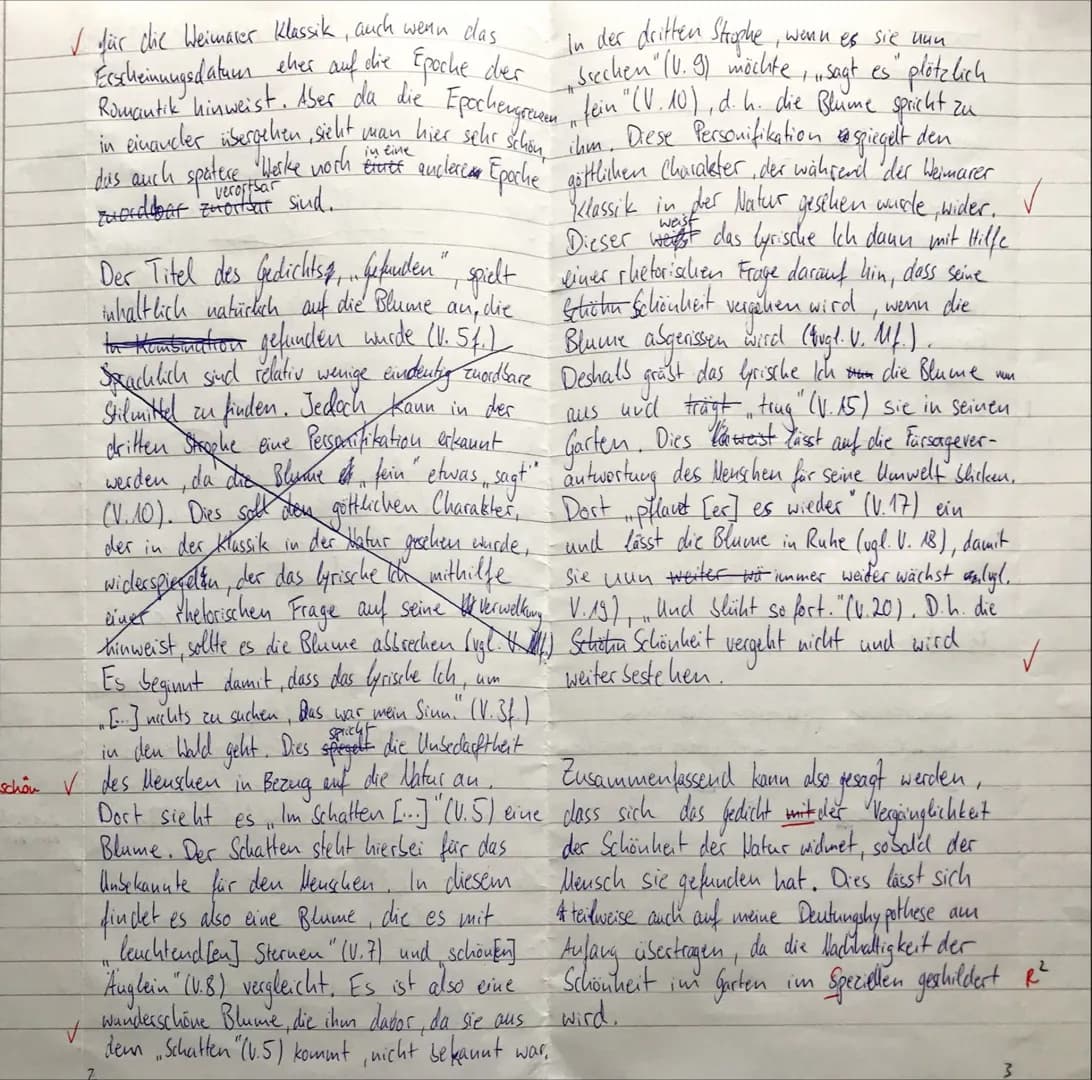 für die Weimarer Klassik, auch wenn das
Erscheinungsdatum eher auf die Epoche der
Romantik hinweist. Aber da die Epochengrenzen
in einander übergehen, sieht man hier sehr schön,
das auch spätere Werke noch in eine andere Epoche
verortbar sind.
Der Titel des Gedichts, „Gefunden", spielt
inhaltlich natürlich auf die Blume an, die
In Kombination gefunden wurde (V. 5f.)
Sprachlich sind relativ wenige eindeutig zuordbare
Stilmittel zu finden. Jedoch kann in der
dritten Strophe eine Personifikation erkannt
werden, da die Blume „fein" etwas „sagt"
(V.10). Dies soll den göttlichen Charakter,
der in der Klassik in der Natur gesehen wurde,
widerspiegeln, der das lyrische Ich mithilfe
einer rhetorischen Frage auf seine Verwelkung
hinweist, sollte es die Blume abbrechen (vgl. V. 11f.)
Es beginnt damit, dass das lyrische Ich, um
„[...] nichts zu suchen, Das war mein Sinn." (V. 3f.)
in den Wald geht. Dies spricht die Unbedachtheit
schön ✓ des Menschen in Bezug auf die Natur an.
Dort sieht es „Im Schatten [...]" (V.5) eine
Blume. Der Schatten steht hierbei für das
Unbekannte für den Menschen. In diesem
findet es also eine Blume, die es mit
„leuchtend[en] Sternen" (V.7) und „schön[en]
Äuglein" (V.8) vergleicht. Es ist also eine
wunderschöne Blume, die ihm dabor, da sie aus
dem „Schatten" (V.5) kommt, nicht bekannt war.
2
In der dritten Strophe, wenn es sie nun
„brechen" (V. 9) möchte, „sagt es" plötzlich
„fein" (V.10), d.h. die Blume spricht zu
ihm. Diese Personifikation spiegelt den
göttlichen Charakter, der während der Weimarer
Klassik in der Natur gesehen wurde, wider.
Dieser weist das lyrische Ich dann mit Hilfe
einer rhetorischen Frage darauf hin, dass seine
Schönheit vergehen wird, wenn die
Blume abgerissen wird (vgl. V. 11f.).
Deshalb gräbt das lyrische Ich die Blume nun
aus und trägt „trug" (V.15) sie in seinen
Garten. Dies lässt auf die Fürsagever-
antwortung des Menschen für seine Umwelt blicken.
Dort „pflanzt [er] es wieder" (V.17) ein
und lässt die Blume in Ruhe (vgl. V. 18), damit
sie nun weiter immer weiter wächst (vgl.
V.19), „Und blüht so fort." (V.20). D.h. die
Schönheit vergeht nicht und wird
weiter bestehen.
Zusammenfassend kann also gesagt werden,
dass sich das Gedicht mit der Vergänglichkeit
der Schönheit der Natur widmet, sobald der
Mensch sie gefunden hat. Dies lässt sich
teilweise auch auf meine Deutungshypothese am
Anfang übertragen, da die Nachhaltigkeit der
Schönheit im Garten im Speziellen geschildert R²
wird.
3